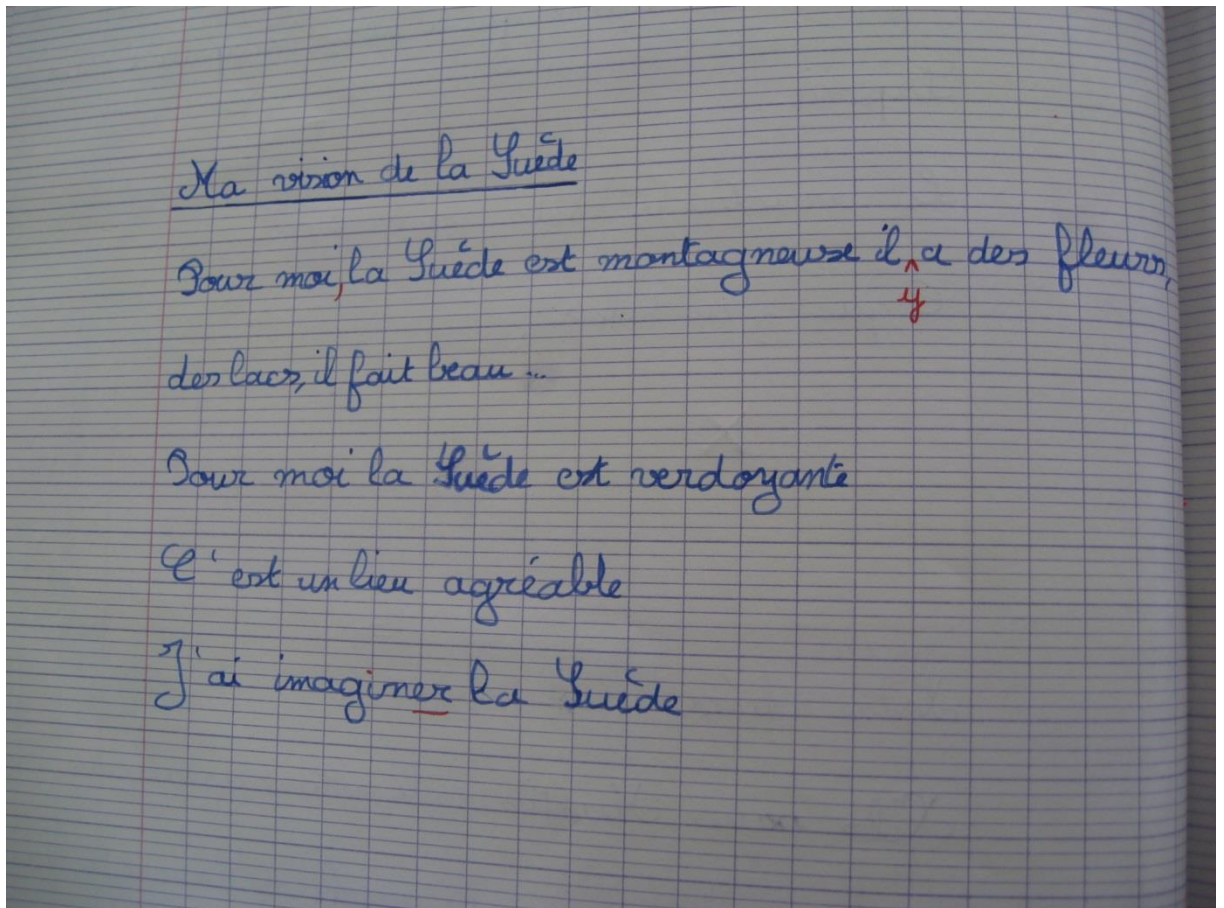 Ma vision de la Suède
Pour moi, la Suède est montagneuse il a des fleurs,
y
des lacs, il fait beau...
Pour moi la Suède est verdoyante
C'est un lieu agréable
J'ai imaginer la Suède